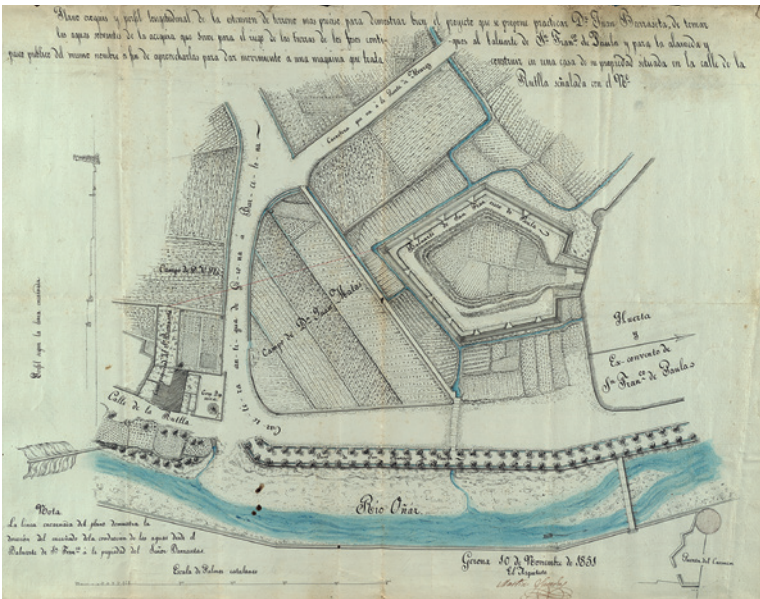 Plano croquis y perfil longitudinal de la estension de terreno mas preciso para demostrar bien el proyecto que se propone practicar Dn. Juan Barraseta, de tomar
las aguas sobrantes de la acequia que sirve para el riego de las tierras de los fosos conti- guos al baluarte de Sn. Franco. de Paula y para la alameda y
paseo publico del mismo nombre a fin de aprovecharlas para dar movimiento a una maquina que trata construir en una casa de su propiedad situada en la calle de la
Rutlla señalada con el No.
Carretera que va á la Puente de
Carretera antigua de Gerona á Barcelona
Campo de D.
Baluarte de San Francisco de Paula
Campo de Dn. Juan
Perfil segun la linea
Huerta
y
Ex-convento de
Sn. Franco. de Paula
Calle de la Rutlla
Rio Oñár.
Nota
La linea encarnada del plano demuestra la
direccion del encañado de la conduccion de las aguas desde el
Baluarte de Sn. Franco. á la propiedad del Señor
Escala de Palmos catalanes
Gerona 10 de Noviembre de 1851
El Arquitecto
Martin
del Carmen